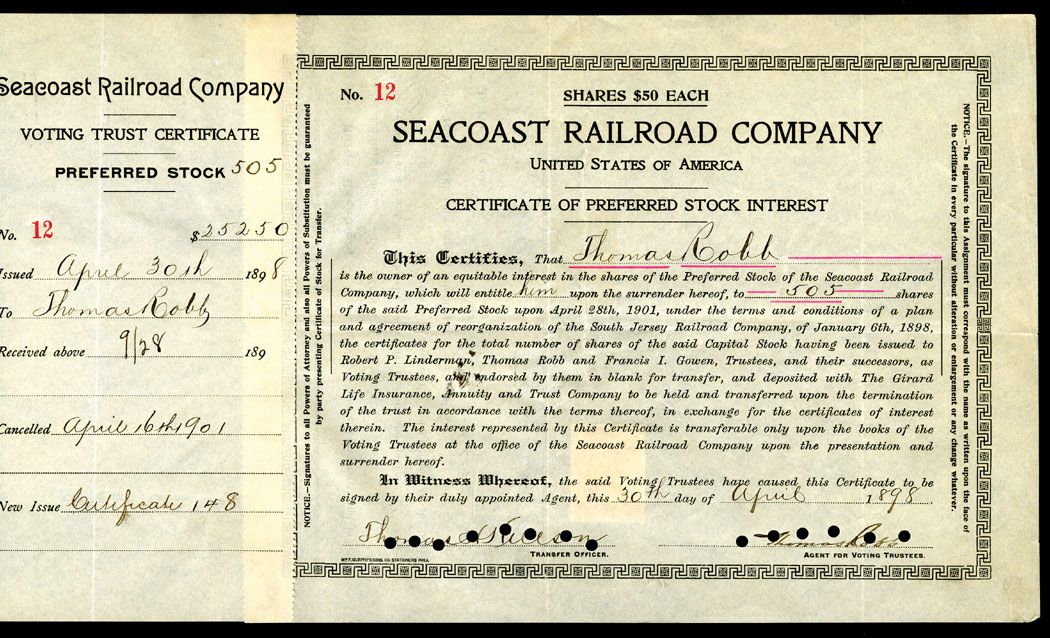 Seacoast Railroad Company
VOTING TRUST CERTIFICATE
PREFERRED STOCK 505
No. 12 $25250
Issued April 30th 1898
To Thomas Robb
Received above 9/28 189
Cancelled April 16th 1901
New Issue Certificate 148
NOTICE.—Signatures to all Powers of Attorney and also all Powers of Substitution must be guaranteed
by party presenting Certificate of Stock for Transfer.
No. 12
SHARES $50 EACH
SEACOAST RAILROAD COMPANY
UNITED STATES OF AMERICA
CERTIFICATE OF PREFERRED STOCK INTEREST
This Certifies, That Thomas Robb
is the owner of an equitable interest in the shares of the Preferred Stock of the Seacoast Railroad
Company, which will entitle him upon the surrender hereof, to 505 shares
of the said Preferred Stock upon April 28th, 1901, under the terms and conditions of a plan
and agreement of reorganization of the South Jersey Railroad Company, of January 6th, 1898,
the certificates for the total number of shares of the said Capital Stock having been issued to
Robert P. Linderman, Thomas Robb and Francis I. Gowen, Trustees, and their successors, as
Voting Trustees, and endorsed by them in blank for transfer, and deposited with The Girard
Life Insurance, Annuity and Trust Company to be held and transferred upon the termination
of the trust in accordance with the terms thereof, in exchange for the certificates of interest
therein. The interest represented by this Certificate is transferable only upon the books of the
Voting Trustees at the office of the Seacoast Railroad Company upon the presentation and
surrender hereof.
In Witness Whereof, the said Voting Trustees have caused this Certificate to be
signed by their duly appointed Agent, this 30th day of April 1898
Thomas
Thomas Robb
TRANSFER OFFICER.
AGENT FOR VOTING TRUSTEES.
NOTICE.—The signature to this Assignment must correspond with the name as written upon the face of
the Certificate in every particular without alteration or enlargement or any change whatever.